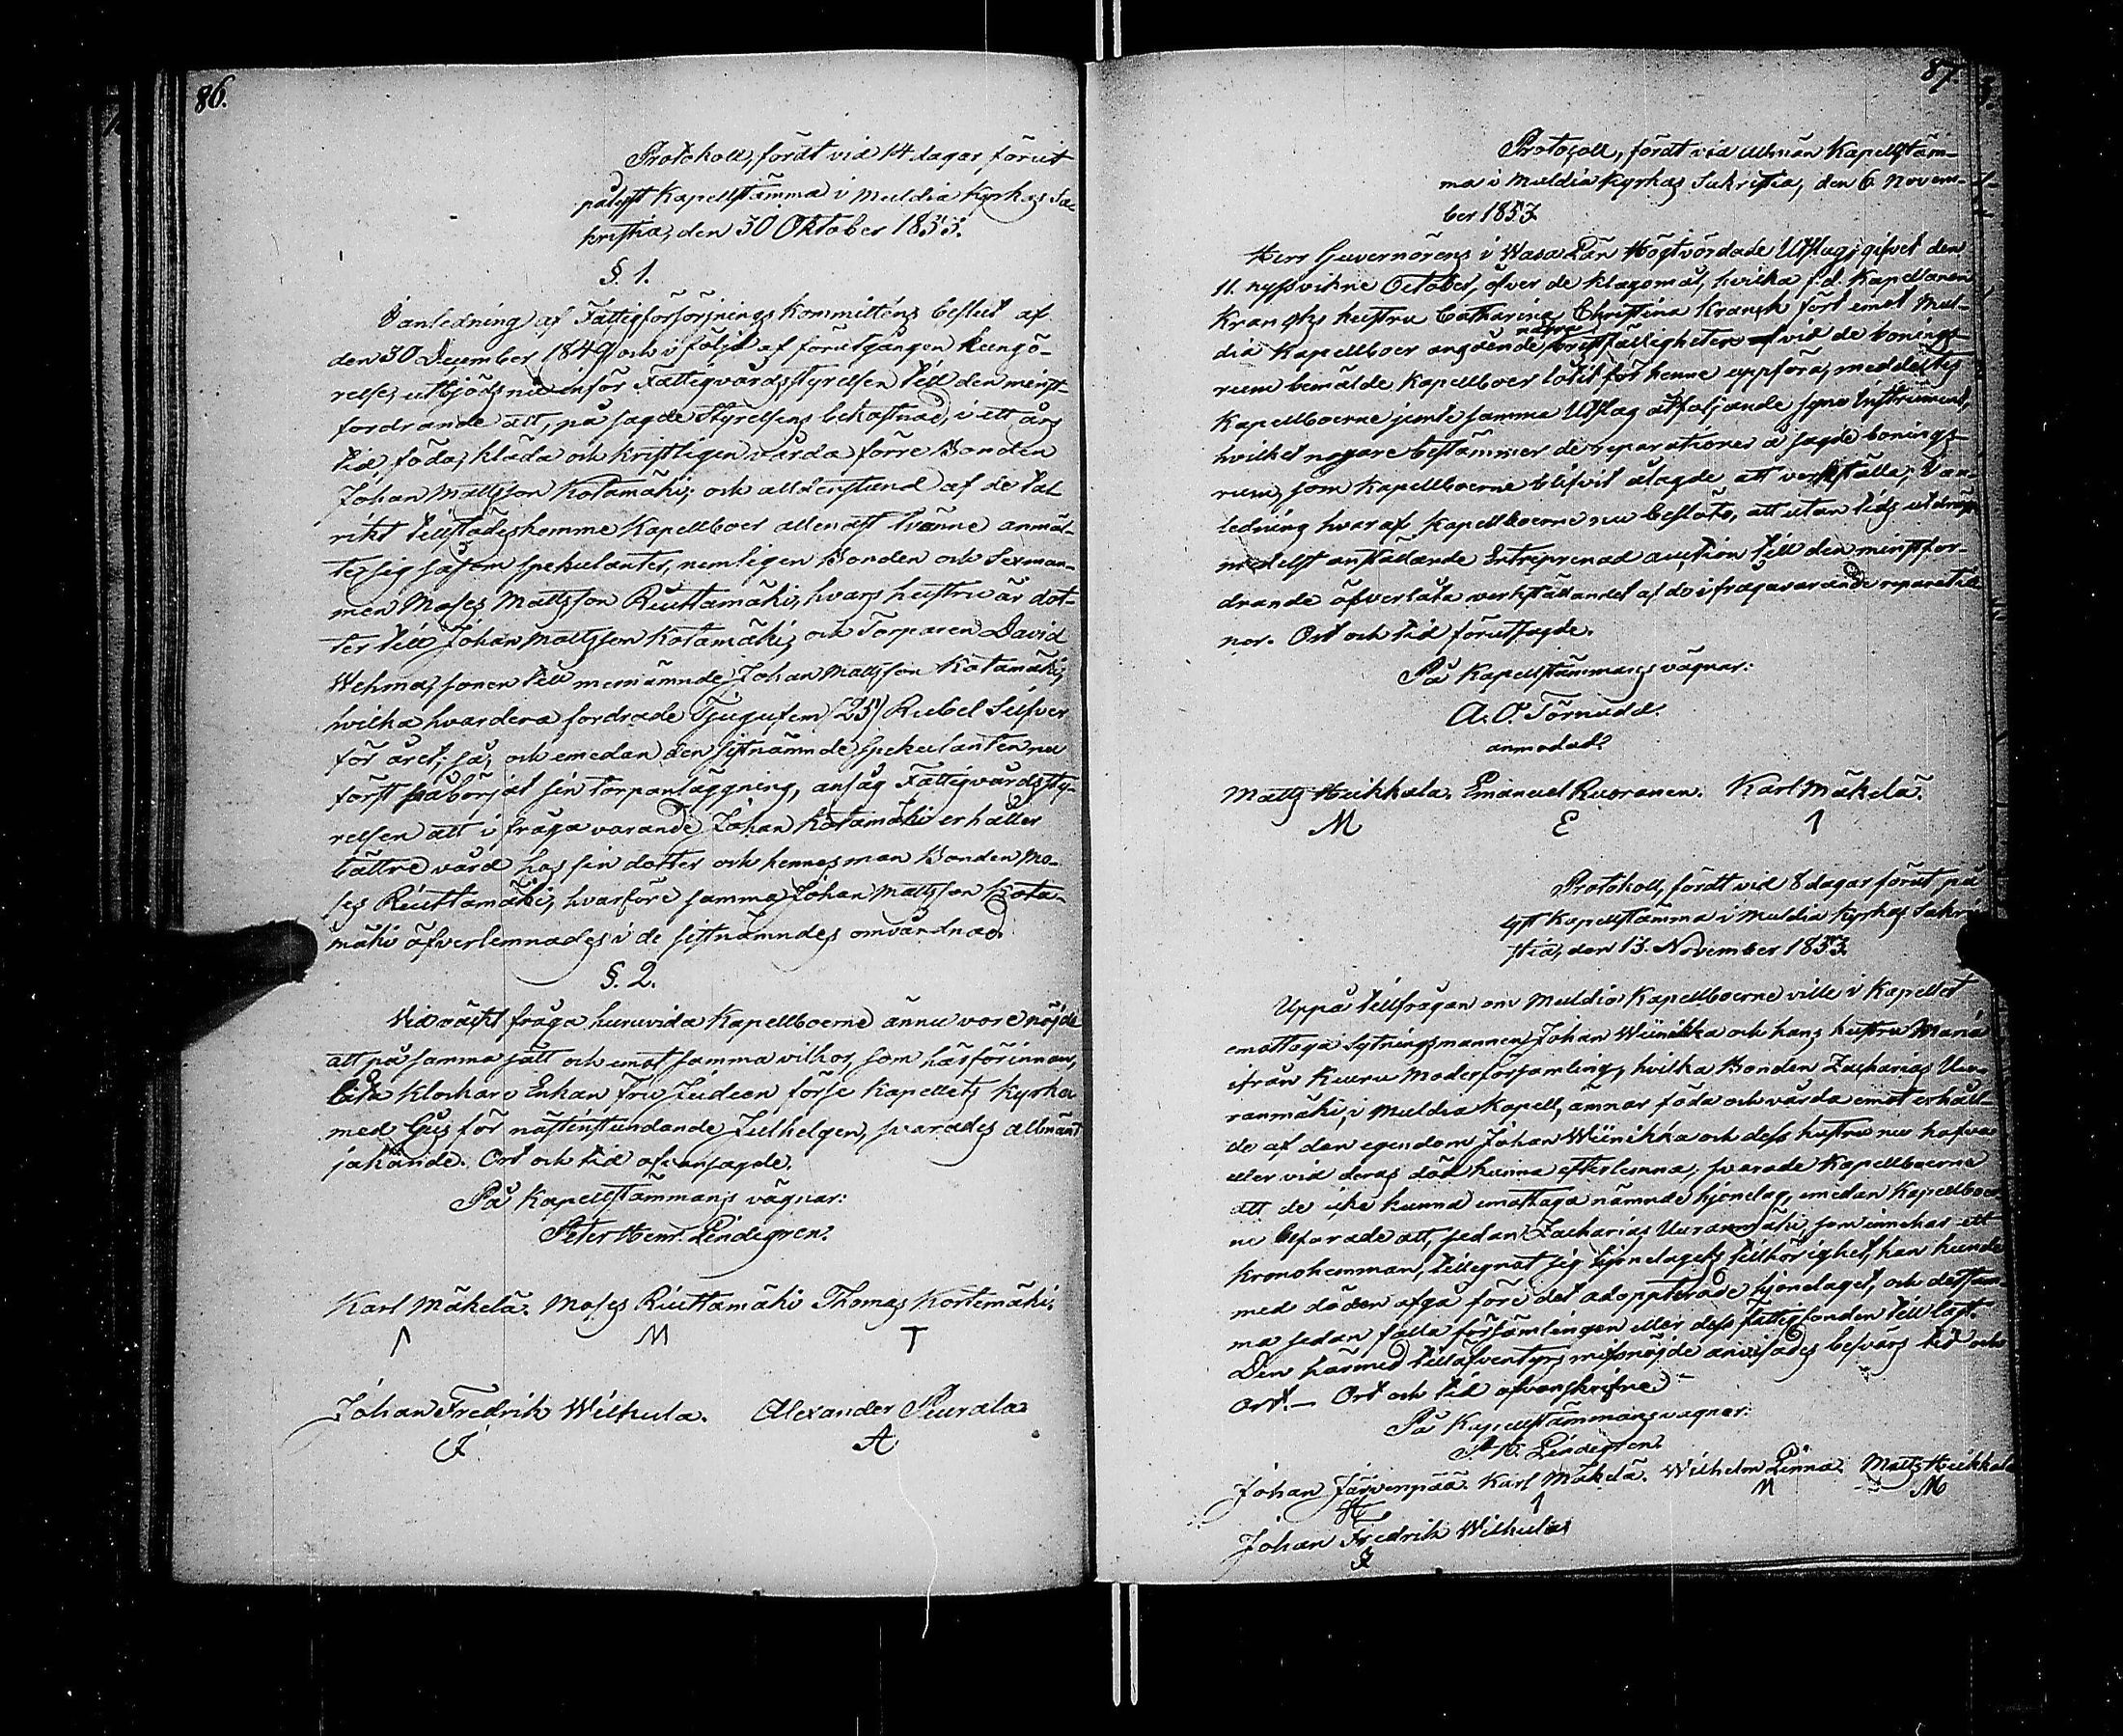 86.
Protokoll, fördt vid 14 dagar förut
pålyst Kapellstämma i Muldia Kyrkas Sa-
kristia, den 30 Oktober 1853.
§. 1.
I anledning af Fattigförsörjnings Kommitténs beslut af
den 30 December 1849 och i följd af förutgången kungö-
relse, utbjöds nu inför Fattigvårdsstyrelsen till den minst-
fordrande att, på sagde Styrelsens bekostnad, i ett års
tid, föda, kläda och kristligen vårda förre Bonden
Johan Mattsson Kotamäki; och alldenstund af de tal
rikt tillstädeskomne Kapellboer allenast tvänne anmäl-
te sig såsom spekulanter, nemligen Bonden och Sexman-
nen Moses Mattsson Riuttamäki, hvars hustru är dot-
ter till Johan Mattsson Kotamäki, och Torparen David
Wehma, sonen till mernämnde Johan Mattsson Kotamäki,
hvilka hvardera fordrade Tjugufem (25) Rubel Silfver
för året; så, och emedan den sistnämnde spekulanten nu
först påbörjat sin torpanläggning, ansåg Fattigvårdssty-
relsen att i fråga varande Johan Kotamäki erhåller
bättre vård hos sin dotter och hennes man Bonden Mo-
ses Riuttamäki, hvarföre samma Johan Mattsson Kota-
mäki öfverlemnades i de sistnämndes omvårdnad.
§. 2.
Vid väckt fråga huruvida Kapellboerne ännu vore nöjde
att på samma sätt och emot samma vilkor, som härförinnan,
låta Klockare Enkan Fru Zideen förse Kapellets Kyrka
med ljus för nästinstundande Julhelgen, svarades allmänt
jakande. Ort och tid ofvansagde.
På Kapellstämmans vägnar:
Peter Henr. Lindegren.
Karl Mäkelä. Moses Riuttamäki Thomas Kortemäki.
Λ M T
Johan Fredrik Wilkula. Alexander Peurala
J A
87
Protocoll, fördt vid allmän Kapellstäm-
ma i Muldia Kyrkas Sakristia, den 6 Novem-
ber 1853
Herr Guvernörens i Wasa Län Högtvördade Utslag, gifvet den
11. nyssvikne October, öfver de klagomål, hvilka f.d. Kapellanen
Krancks hustru Catharina Christina Kranck fört emot Mul-
dia Kapellboer angående några bristfälligheter vid de bonings-
rum bemälde Kapellboer låtit för henne uppföra, meddeltes
Kapellboerne jemte samma Utslag åtföljande syne Instrument,
hvilket nogare bestämmer de reparationer å sagde bonings-
rum, som Kapellboerne blifvit ålagde att verkställa; I an-
ledning hvaraf Kapellboerne nu beslöto, att utan tids utdrägt
medelst anställande Entreprenad auction till den minstfor-
drande öfverlåta verkställandet af de ifrågavarande reparatio
ner. Ort och tid förutsagde.
På Kapellstämmans vägnar:
A. O. Törnudd.
anmodad.
Matts Heikkala. Emanuel Ruoranen. Karl Mäkelä.
M E 1
Protokoll, fördt vid 8 dagar förut på
lyst Kapellstämma i Muldia Kyrkas Sakri
stia, den 13. November 1853.
Uppå tillfrågan om Muldia Kapellboerne ville i Kapellet
emottaga Sytningsmannen Johan Wiinikka och hans hustru Maria
ifrån Keuru Moderförsamling, hvilka Bonden Zacharias Uu-
ranmäki, i Muldia Kapell, ämnar föda och vårda emot erhåll-
de af den egendom Johan Wiinikka och dess hustru nu hafva
eller vid deras död kunna efterlemna, svarade Kapellboerne
att de icke kunna emottaga nämnde hjonelag, emedan Kapellboer
ne befarade att, sedan Zacharias Uuranmäki, som innehar ett
kronohemman, tillegnat sig hjonelagets tillhörighet, han kunde
med döden afgå före det adopterade hjonelaget, och detsam-
ma sedan falla församlingen eller dess fattigfonden till last.
Den härmed tilläfventyrs missnöjde anvisades besvärs tid och
Ort. — Ort och tid ofvanskrefne.
På Kapellstämmans vägnar:
P. H. Lindegren.
Johan Järvenpää. Karl Mäkelä. Wilhelm Linna. Matts Heikkala
1 M M
Johan Fredrik Wilkula
J